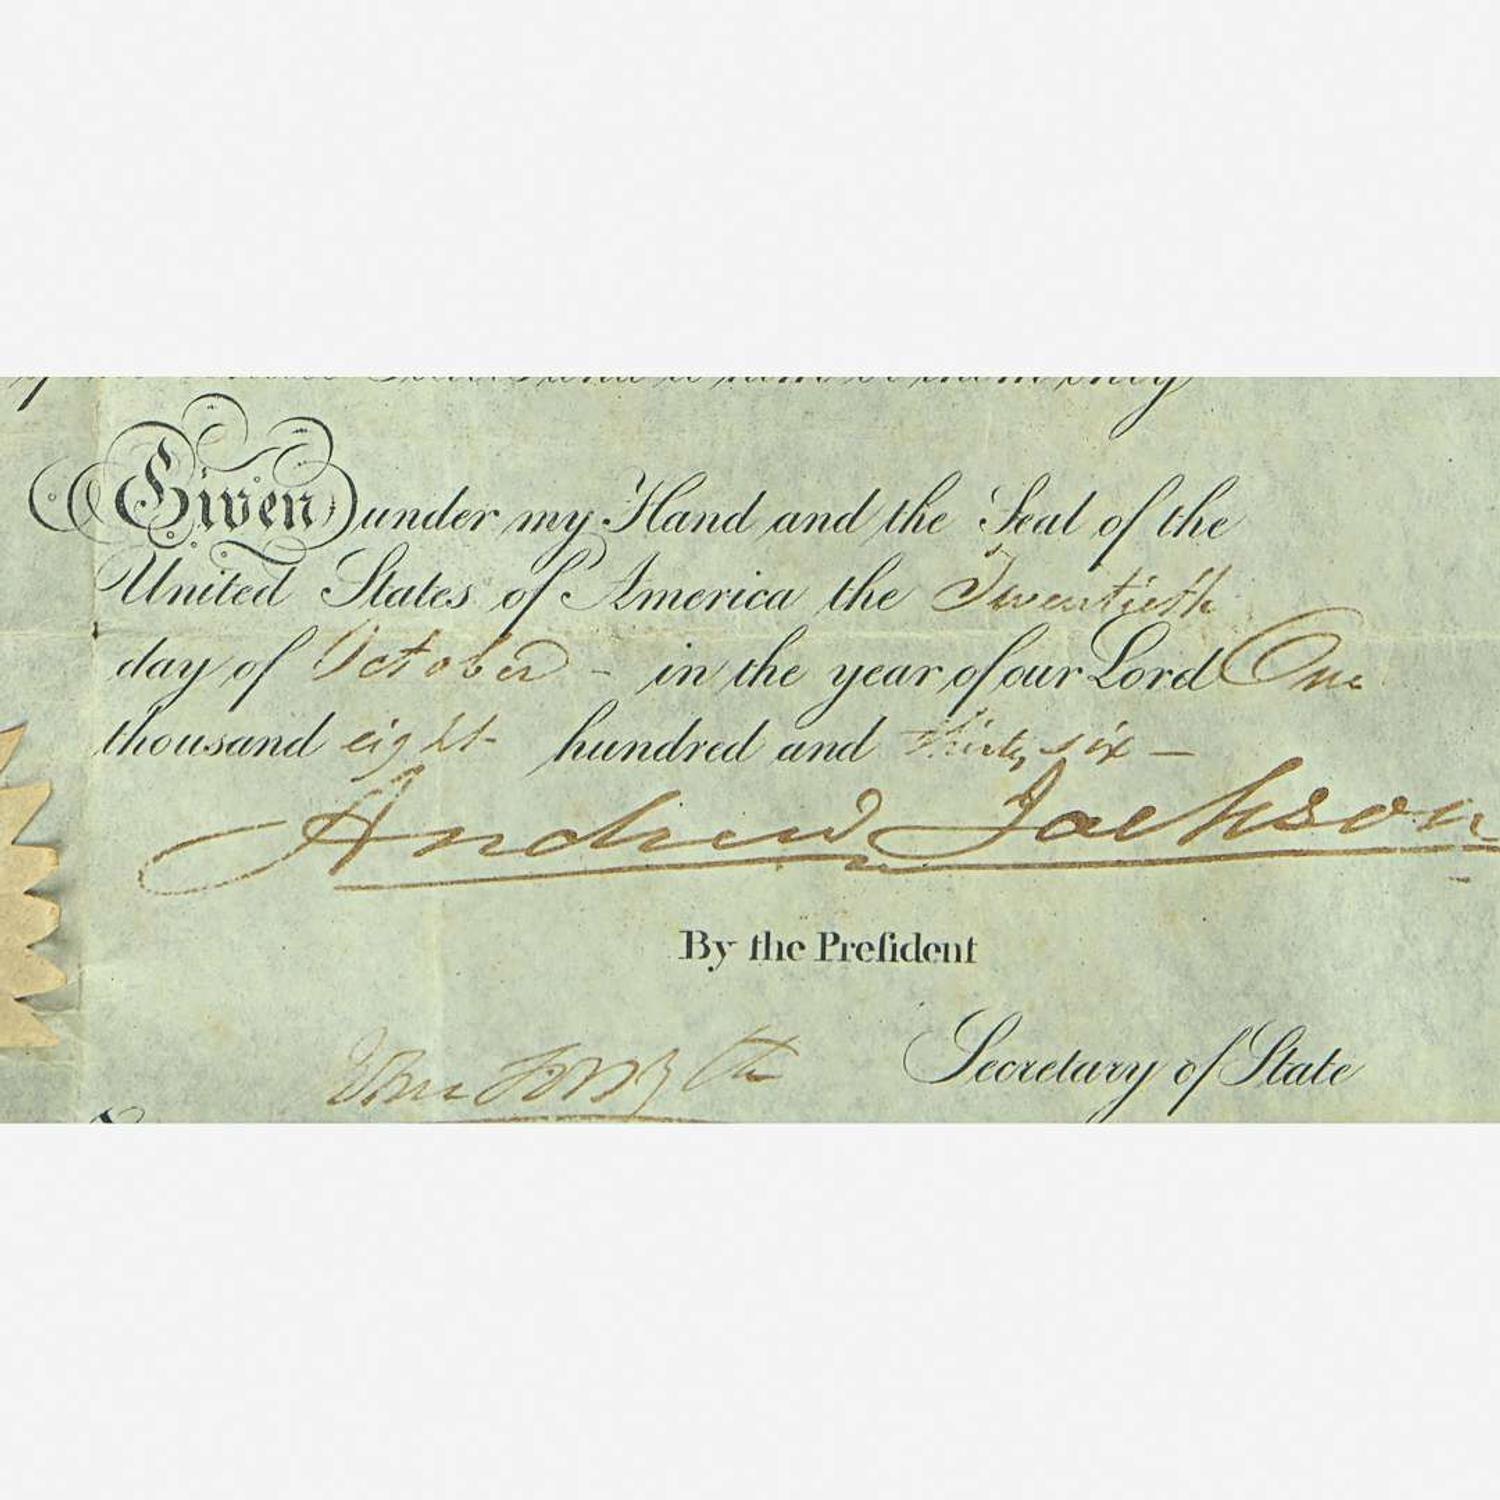 Given under my Hand and the Seal of the
United States of America the Twentieth
day of October – in the year of our Lord One
thousand eight hundred and thirty six —
Andrew Jackson
By the Preſident
John Forsyth Secretary of State